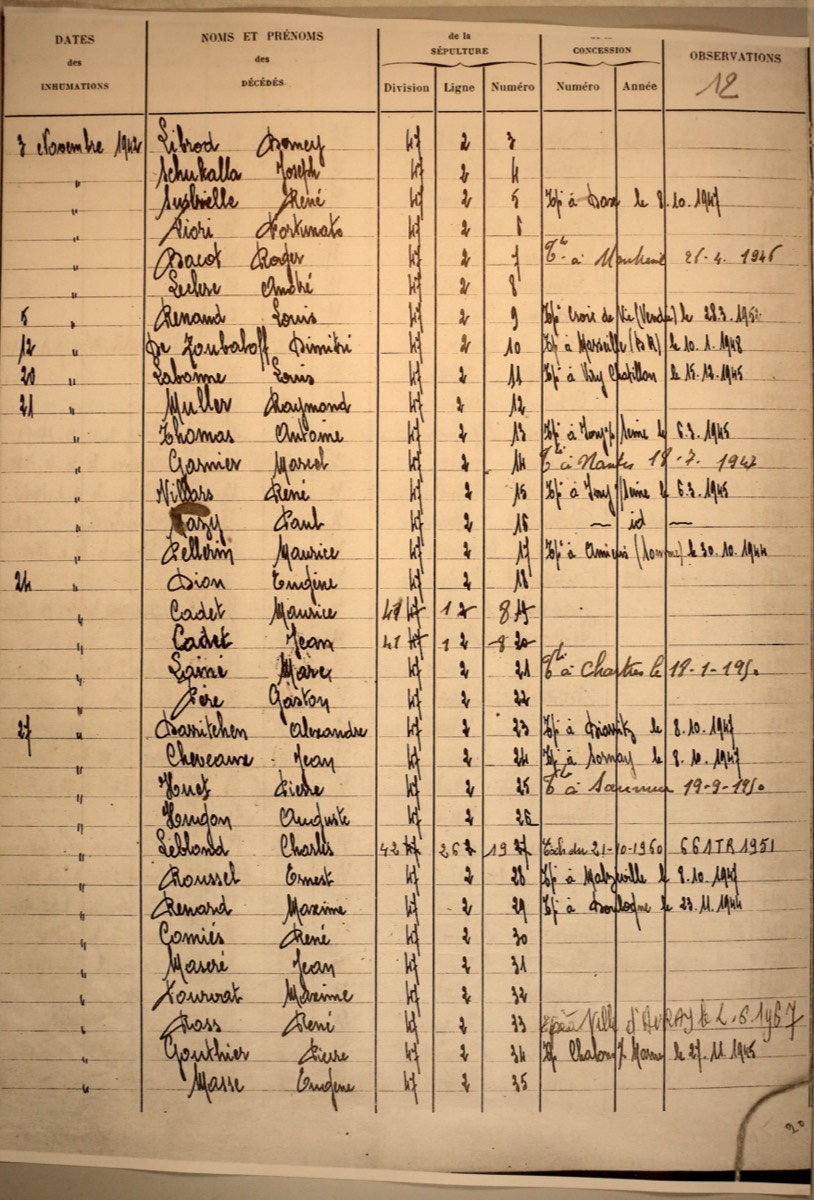 DATES des INHUMATIONS
NOMS ET PRÉNOMS des DÉCÉDÉS
de la SÉPULTURE
CONCESSION
OBSERVATIONS
12
Division Ligne Numéro Numéro Année
3 Novembre 1942 Librod 47 2 3
" Schukalla Joseph 47 2 4
" René 47 2 5 Tf à Dax le 8.10.1947
" Fiori Fortunato 47 2 6
" Bacot Roger 47 2 7 à 1946
" Leclere André 47 2 8
5 " Renaud Louis 47 2 9 Tf Croix de Vie (Vendée) le 28.3.1951
12 " De Zoubaloff Dimitri 47 2 10 Tf à Marseille (B R) le 10.1.1948
20 " Labonne Louis 47 2 11 Tf à Viry Chatillon le 15.12.1945
21 " Muller Raymond 47 2 12
" Thomas Antoine 47 2 13 Tf à Ivry s/ Seine le 6.3.1945
" Garnier Marcel 47 2 14 à Nantes 18-7.1947
" Villars René 47 2 15 Tf à Ivry s/ Seine le 6.3.1945
" Paul 47 2 16 — id —
" Pellerin Maurice 47 2 17 Tf à Amiens (Somme) le 30.10.1944
24 " Dion Eugène 47 2 18
" Cadet Maurice 41 47 1 2 8 19
" Cadet Jean 41 47 1 2 8 20
" Lainé Marc 47 2 21 à Chartres le 18-1-1950
" Père Gaston 47 2 22
27 " Darritchen Alexandre 47 2 23 Tf à Biarritz le 8.10.1947
" Cheveaux Jean 47 2 24 Tf à Sornay le 8.10.1947
" Huet Pierre 47 2 25 à Saumur 19-9-1950
" Houdon Auguste 47 2 26
" Leblond Charles 42 47 26 2 19 27 Exh du 21-10-1960 661TR1951
" Roussel Ernest 47 2 28 Tf à Malzéville le 8.10.1947
" Renard Maxime 47 2 29 Tf à Boulogne le 23.11.1944
" Comiés René 47 2 30
" Mascré Jean 47 2 31
" Maxime 47 2 32
" Ross René 47 2 33 Ville d'AVRAY le 2.6.1967
" Gauthier Pierre 47 2 34 Tf Chalons s/ Marne le 27.11.1945
" Masse Eugène 47 2 35
20